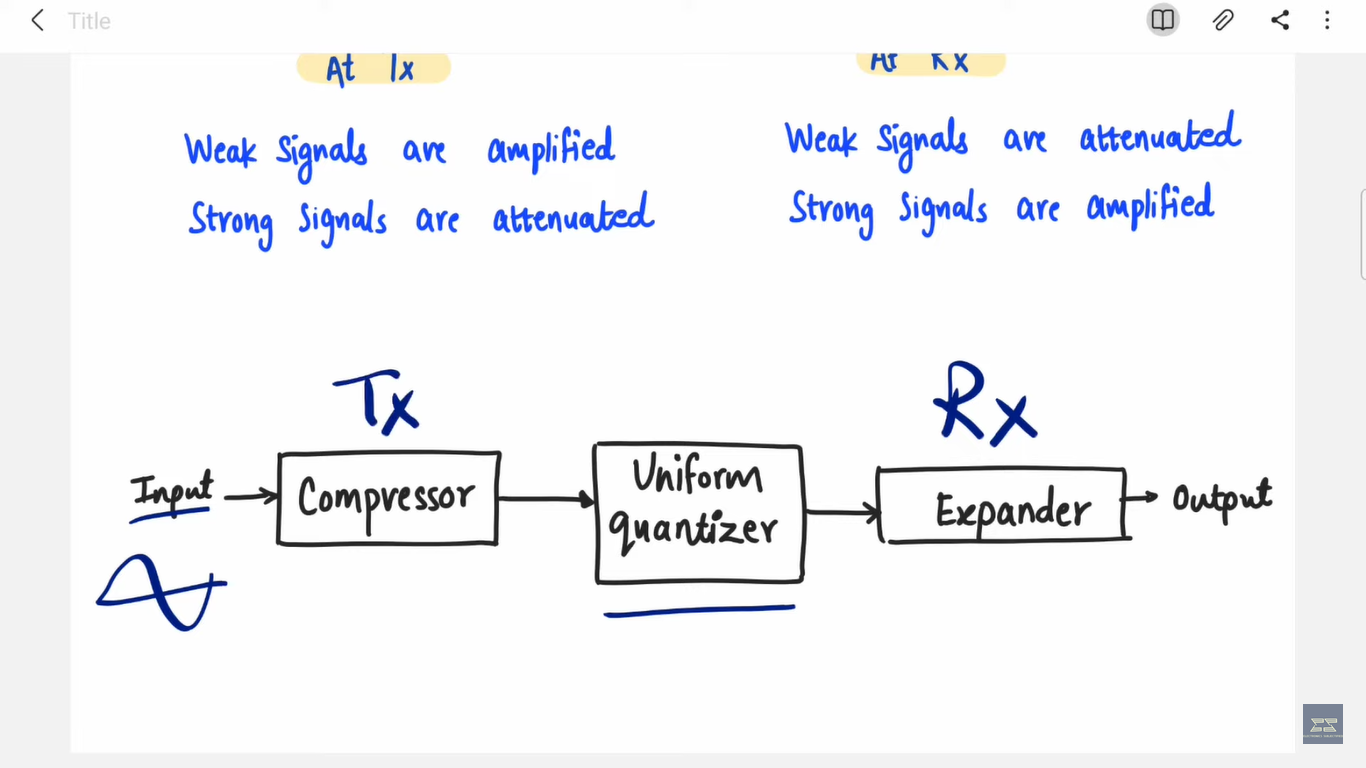 Title
At Tx
At Rx
Weak Signals are amplified
Strong Signals are attenuated
Weak Signals are attenuated
Strong Signals are amplified
Tx
Rx
Input
Compressor
Uniform
quantizer
Expander
Output